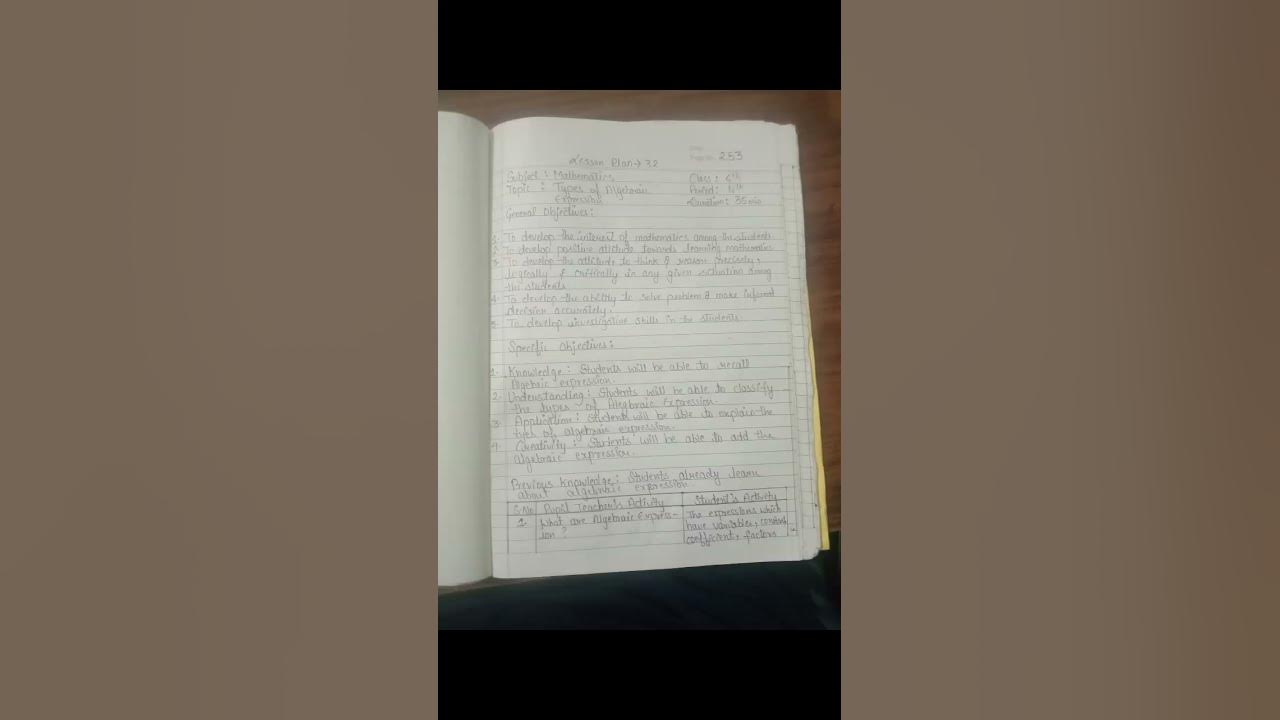 Lesson Plan → 32
253
Subject : Mathematics
Class : 6th
Topic : Types of Algebraic
Period : 6th
Expression
Duration : 35 min
General Objectives :
1. To develop the interest of mathematics among the students
2. To develop positive attitude towards learning mathematics
3. To develop the attitude to think & reason precisely,
logically & critically in any given situation among
the students
4. To develop the ability to solve problem & make informed
decision accurately.
5. To develop investigative skills in the students.
Specific Objectives :
1. Knowledge : Students will be able to recall
Algebraic expression.
2. Understanding : Students will be able to classify
the types of Algebraic Expression.
3. Application : Students will be able to explain the
types of algebraic expression.
4. Creativity : Students will be able to add the
algebraic expression.
Previous Knowledge : Students already learn
about algebraic expression.
S.No. Pupil Teacher's Activity Student's Activity
1. What are Algebraic Express-
ion ?
The expressions which
have variables, constant
coefficient, factors